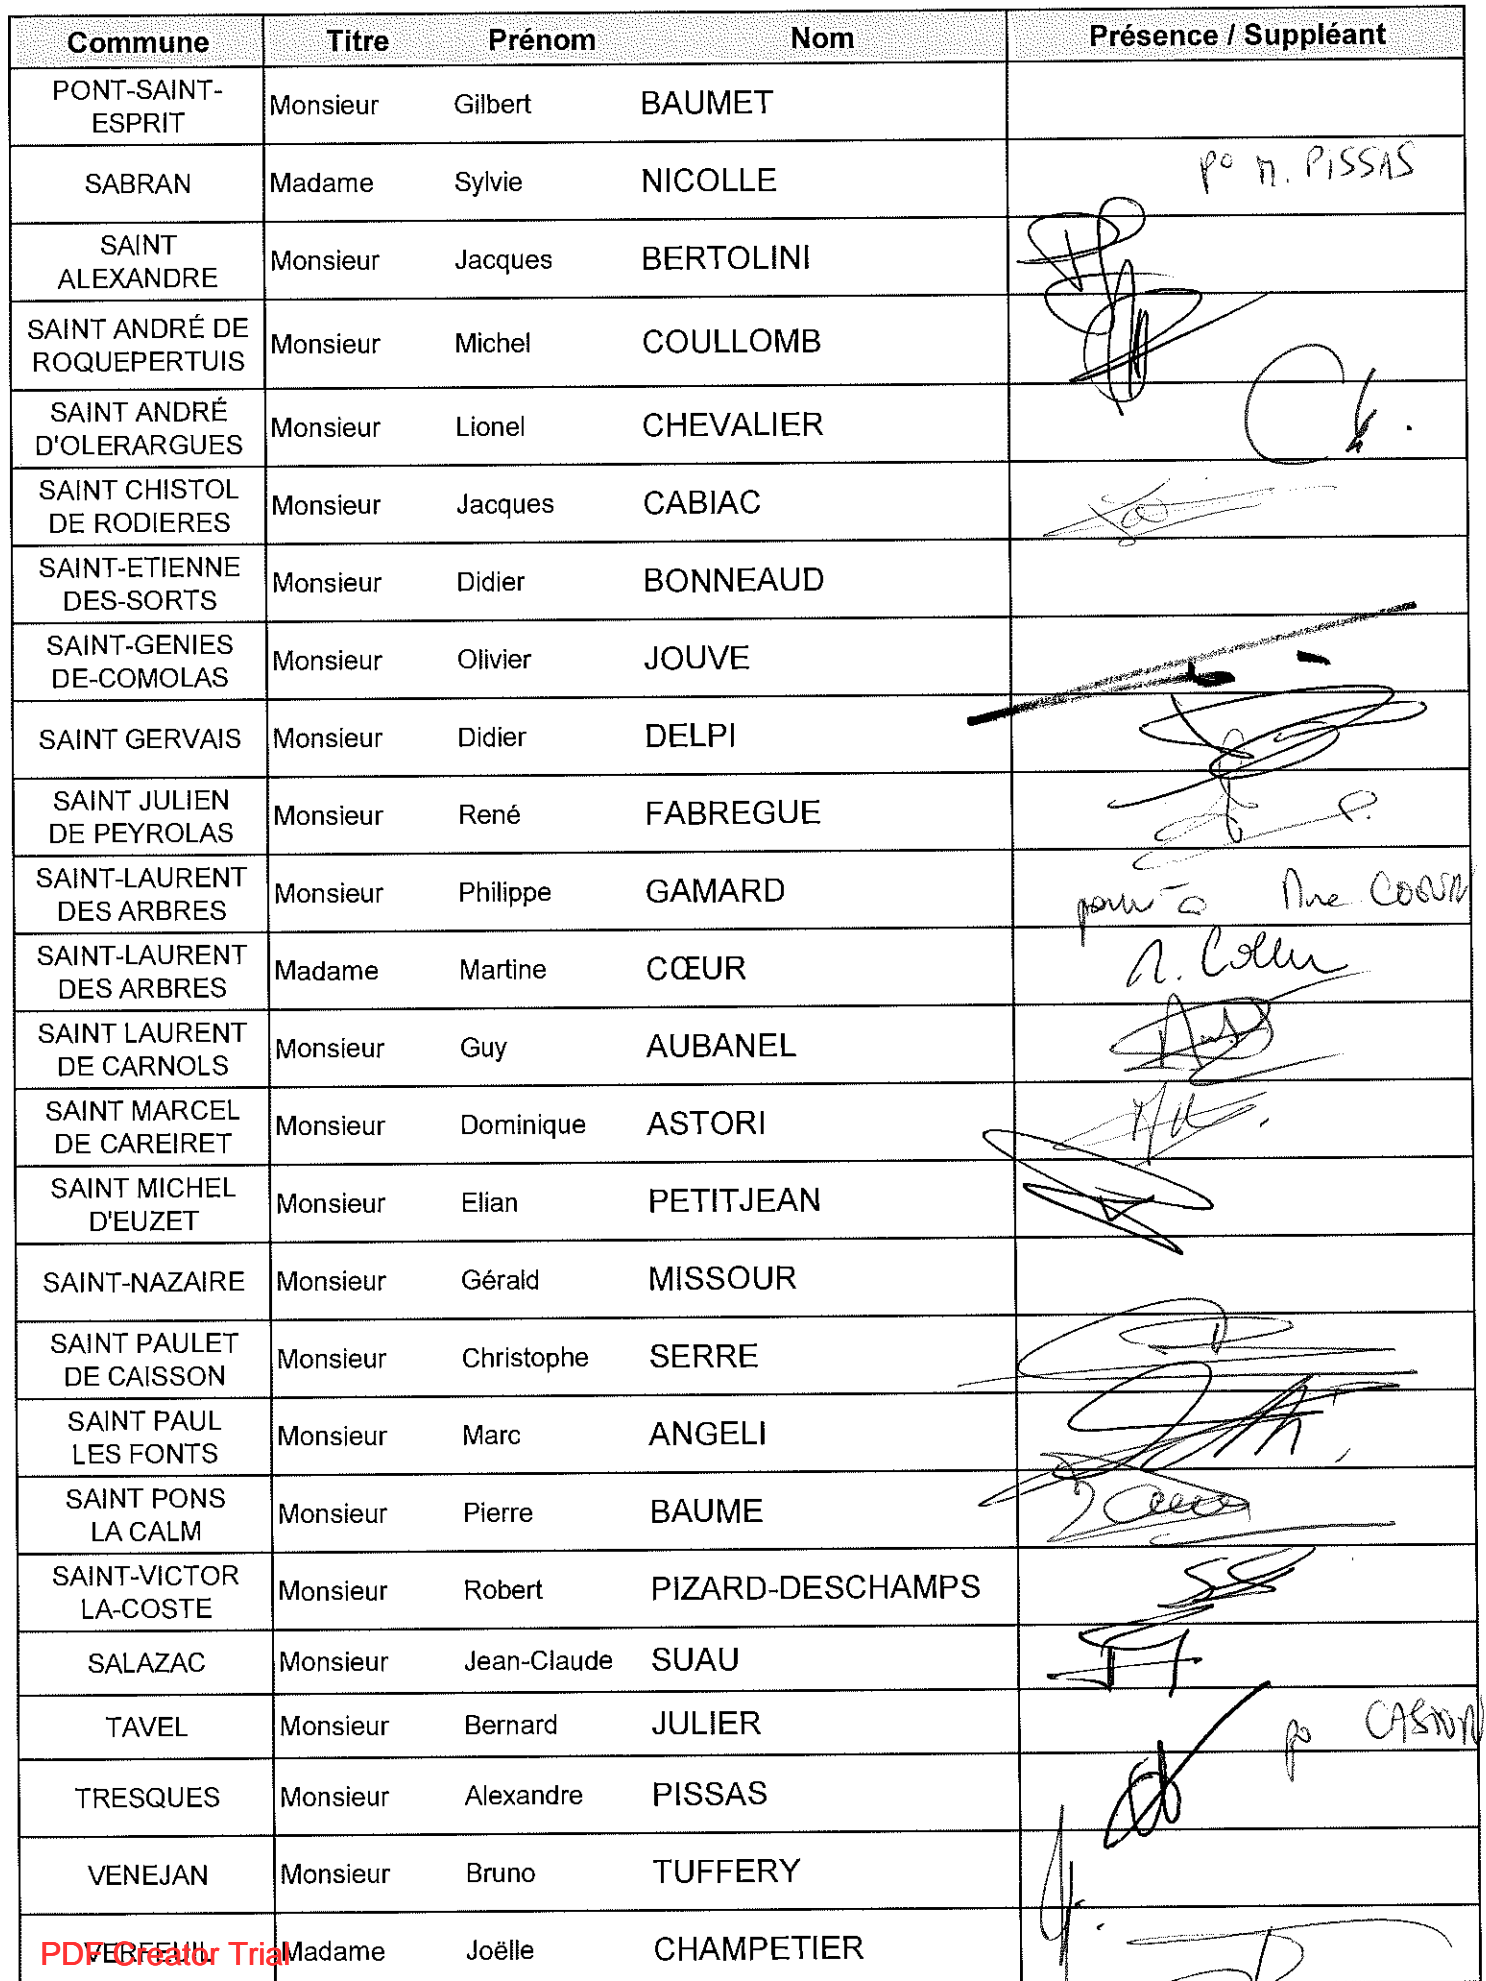 Commune Titre Prénom Nom Présence / Suppléant
PONT-SAINT-
ESPRIT
Monsieur Gilbert BAUMET
SABRAN Madame Sylvie NICOLLE po M. PISSAS
SAINT
ALEXANDRE
Monsieur Jacques BERTOLINI
SAINT ANDRÉ DE
ROQUEPERTUIS
Monsieur Michel COULLOMB
SAINT ANDRÉ
D'OLERARGUES
Monsieur Lionel CHEVALIER
SAINT CHISTOL
DE RODIERES
Monsieur Jacques CABIAC
SAINT-ETIENNE
DES-SORTS
Monsieur Didier BONNEAUD
SAINT-GENIES
DE-COMOLAS
Monsieur Olivier JOUVE
SAINT GERVAIS Monsieur Didier DELPI
SAINT JULIEN
DE PEYROLAS
Monsieur René FABREGUE
SAINT-LAURENT
DES ARBRES
Monsieur Philippe GAMARD Mme
SAINT-LAURENT
DES ARBRES
Madame Martine CŒUR
SAINT LAURENT
DE CARNOLS
Monsieur Guy AUBANEL
SAINT MARCEL
DE CAREIRET
Monsieur Dominique ASTORI
SAINT MICHEL
D'EUZET
Monsieur Elian PETITJEAN
SAINT-NAZAIRE Monsieur Gérald MISSOUR
SAINT PAULET
DE CAISSON
Monsieur Christophe SERRE
SAINT PAUL
LES FONTS
Monsieur Marc ANGELI
SAINT PONS
LA CALM
Monsieur Pierre BAUME
SAINT-VICTOR
LA-COSTE
Monsieur Robert PIZARD-DESCHAMPS
SALAZAC Monsieur Jean-Claude SUAU
TAVEL Monsieur Bernard JULIER po
TRESQUES Monsieur Alexandre PISSAS
VENEJAN Monsieur Bruno TUFFERY
VERFEUIL Madame Joëlle CHAMPETIER
PDF Creator Trial